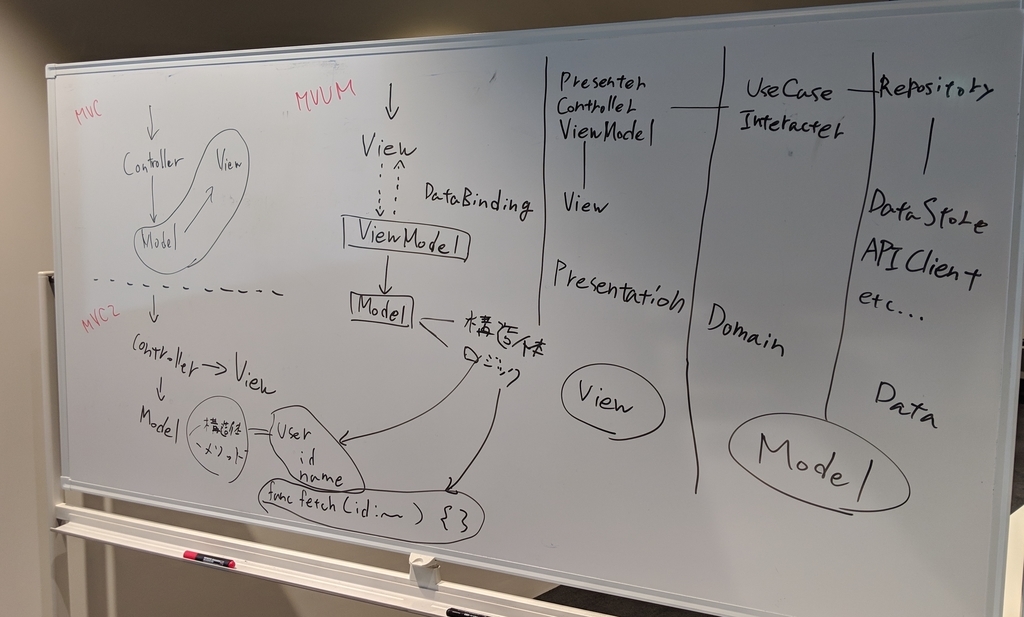 MVC
Controller
View
Model
MVC2
Controller → View
Model
構造体
メソッド
User
id
name
func fetch (id:~ ) { }
MVVM
View
DataBinding
ViewModel
Model
構造体
ロジック
Presenter
Controller
ViewModel
View
Presentation
View
UseCase
Interacter
Domain
Model
Repository
DataStore
API Client
etc...
Data